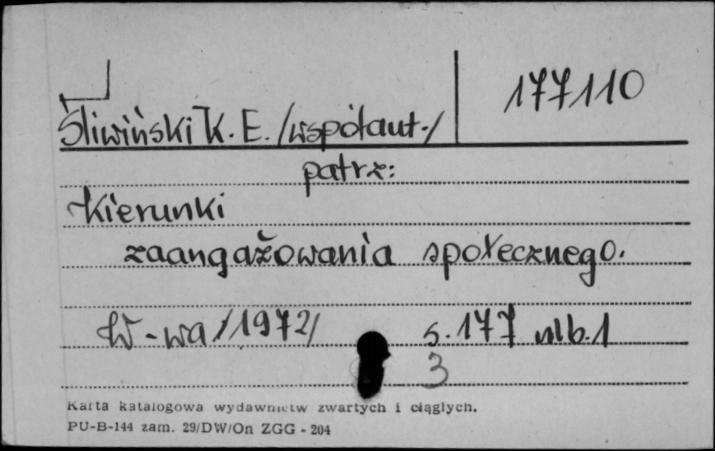 177110
Śliwiński K. E. /współaut./
patrz:
Kierunki
zaangażowania społecznego.
W-wa /1972/ s. 177 nlb. 1
3
Karta katalogowa wydawnictw zwartych i ciągłych.
PU-B-144 zam. 29/DW/On ZGG - 204